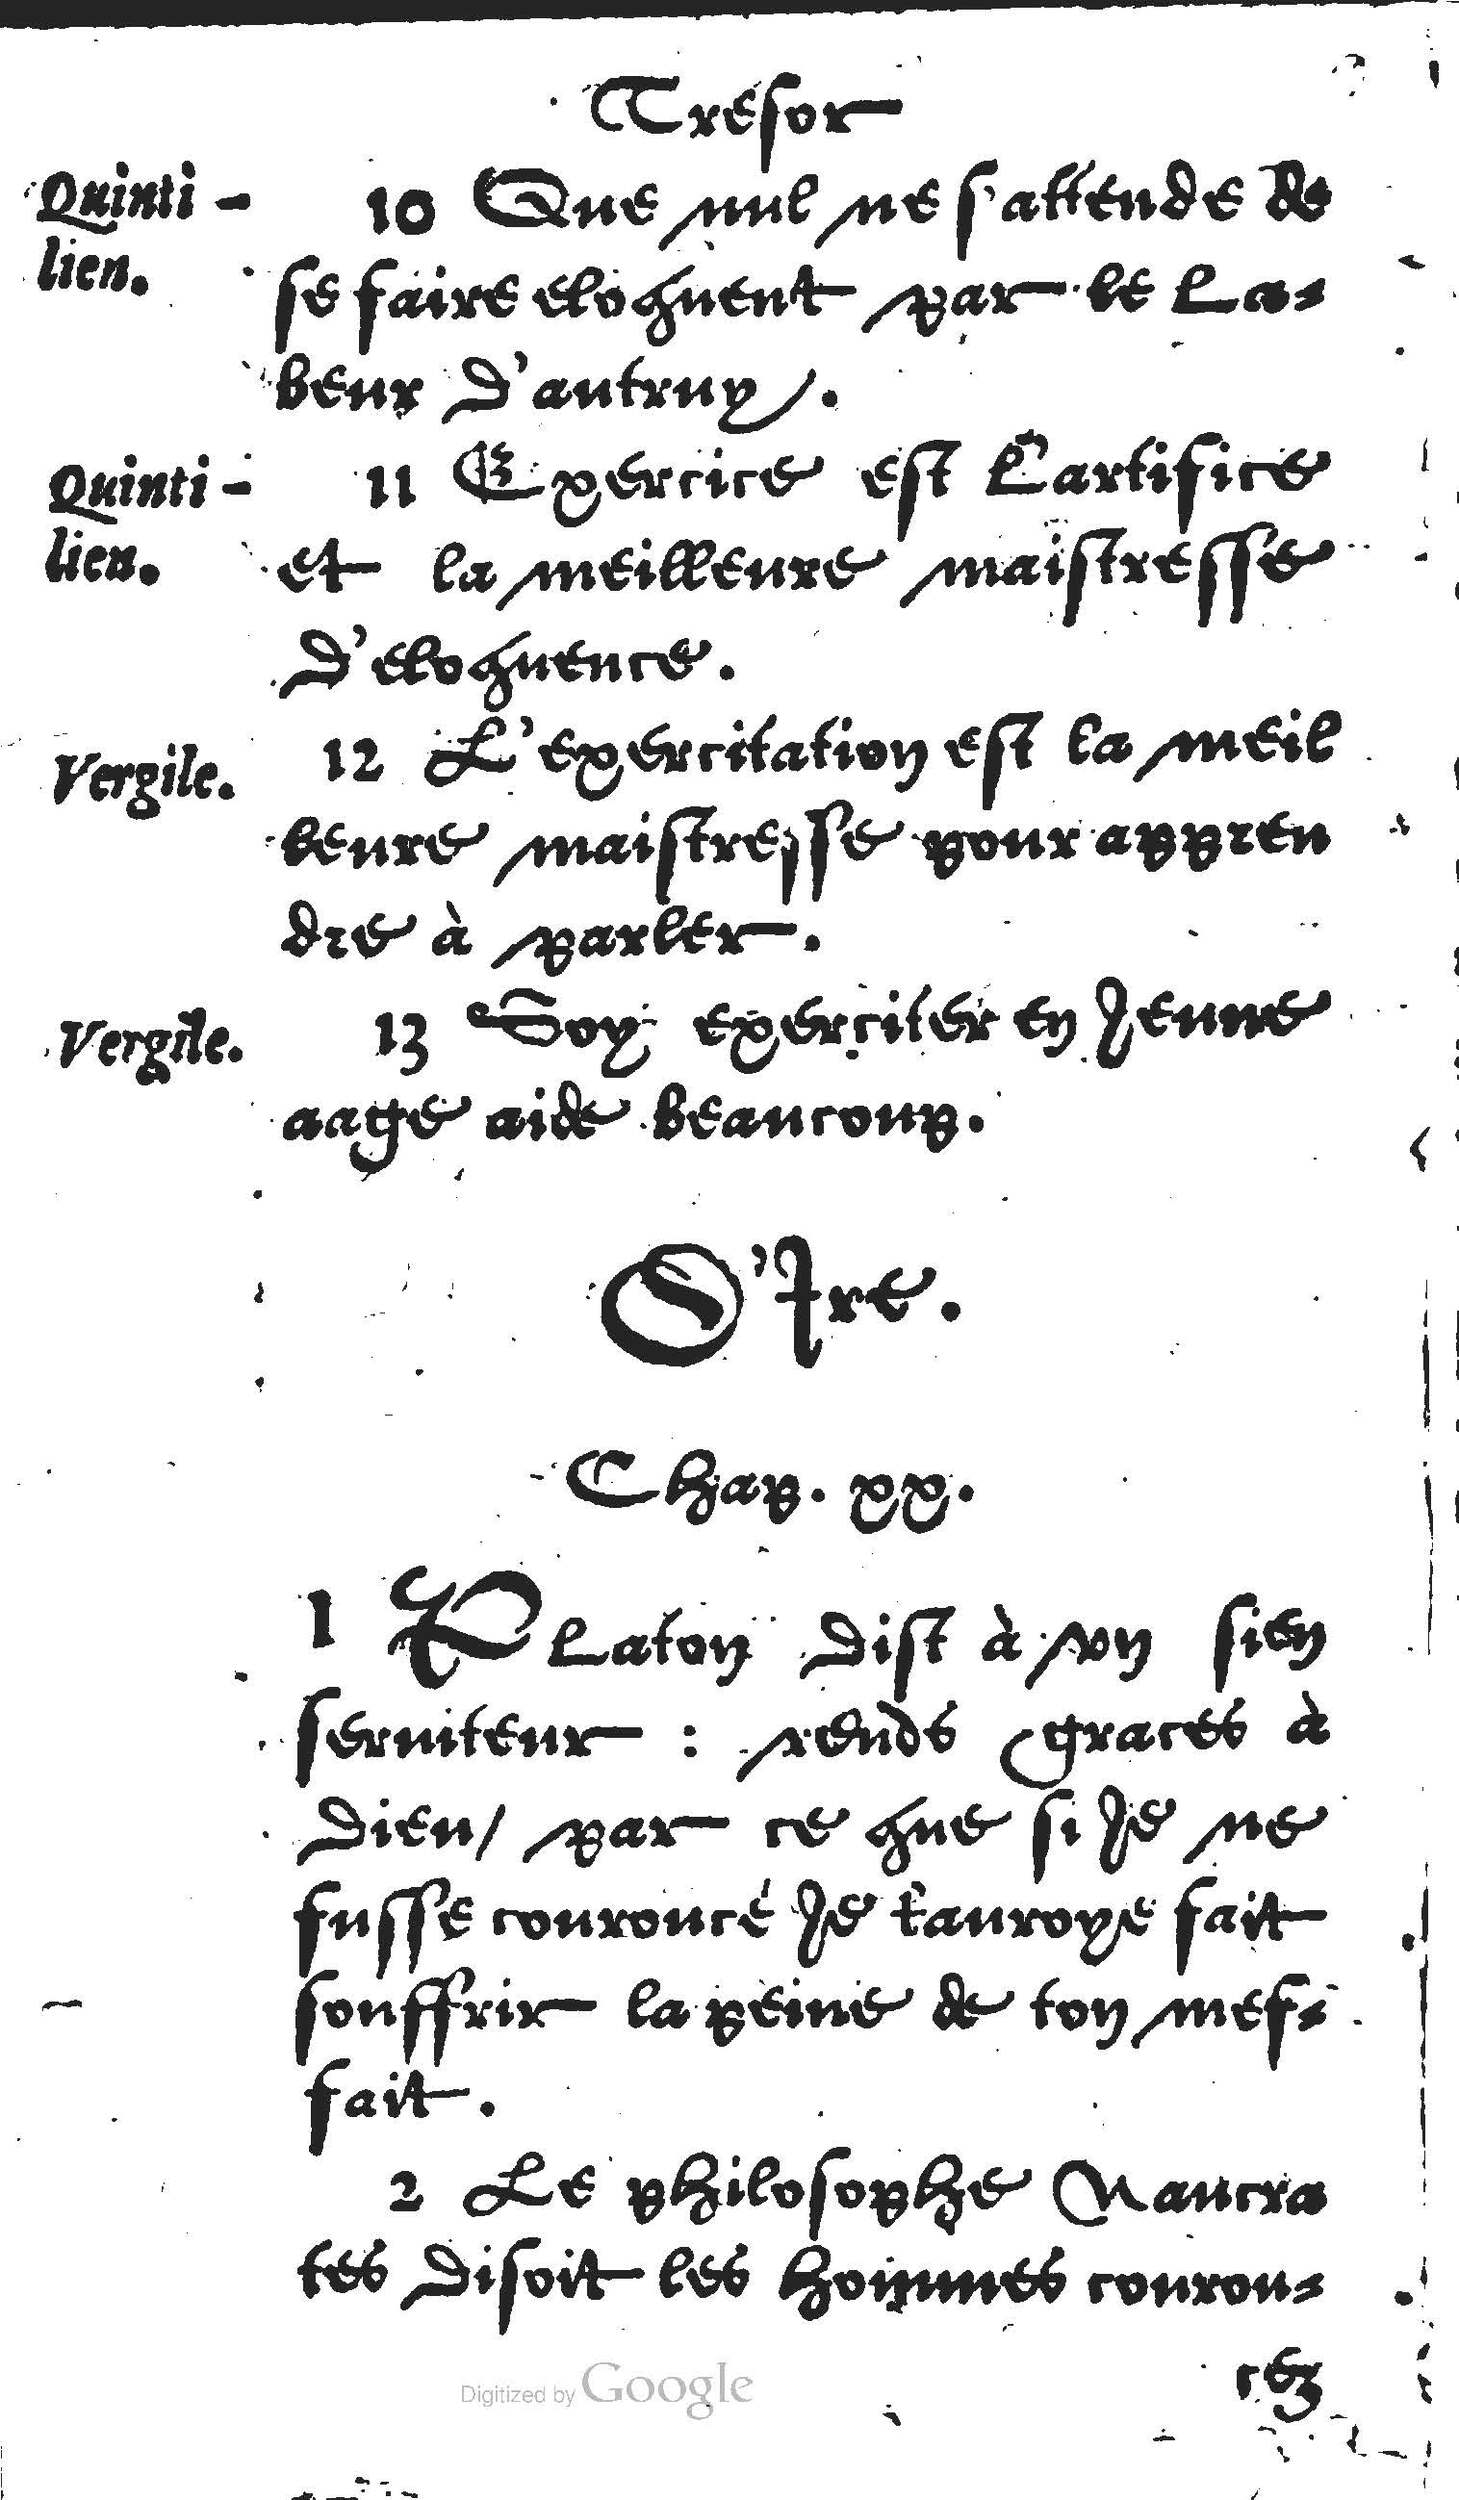 Tresor
Quinti-
lien.
10 Que nul ne s'attende de
se faire eloquent par le la-
beur d'autruy.
Quinti-
lien.
11 Exercice est l'artifice
et la meilleure maistresse
d'eloquence.
Vergile.
12 L'exercitation est la meil
leure maistresse pour appren
dre à parler.
Vergile.
13 Soy exerciter en jeune
aage aide beaucoup.
D'Ire.
Chap. xx.
1 Platon dist à vn sien
seruiteur : rends graces à
Dieu/ par ce que si je ne
fusse couroucé je t'auroye fait
souffrir la peine de ton mef-
fait.
2 Le philosophe Naucra
tes disoit les hommes courou-
cez
Digitized by Google